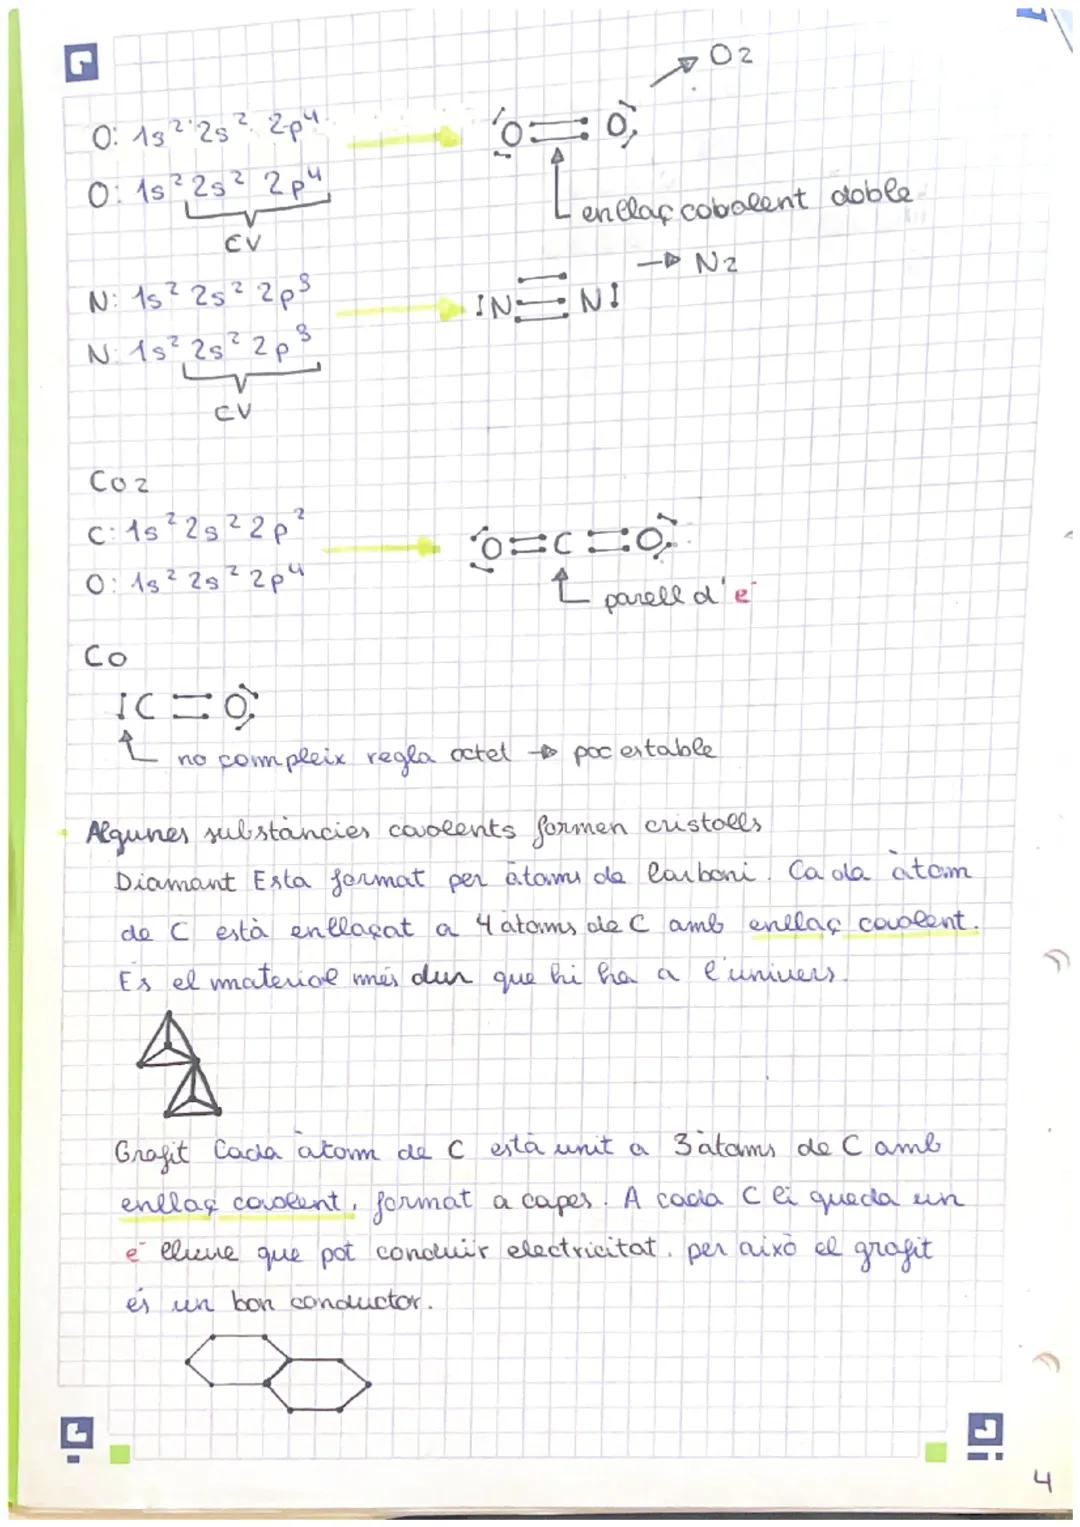 O₂
O: 1s² 2s² 2p⁴
O = O
O: 1s² 2s² 2p⁴
enllaç cobalent doble
CV
N₂
N: 1s² 2s² 2p³
N ≡ N
N: 1s² 2s² 2p³
CV
CO₂
C: 1s² 2s² 2p²
O = C = O
O: 1s² 2s² 2p⁴
parell d'e⁻
CO
C = O
no compleix regla octet → poc estable
Algunes substàncies covalents formen cristalls
Diamant Esta format per àtoms de Carboni. Cada àtom
de C està enllaçat a 4 àtoms de C amb enllaç covalent.
Es el material més dur que hi ha a l'univers.
Grafit Cada àtom de C està unit a 3 àtoms de C amb
enllaç covalent, format a capes. A cada C li queda un
e⁻ lliure que pot conduir electricitat, per això el grafit
és un bon conductor.
4